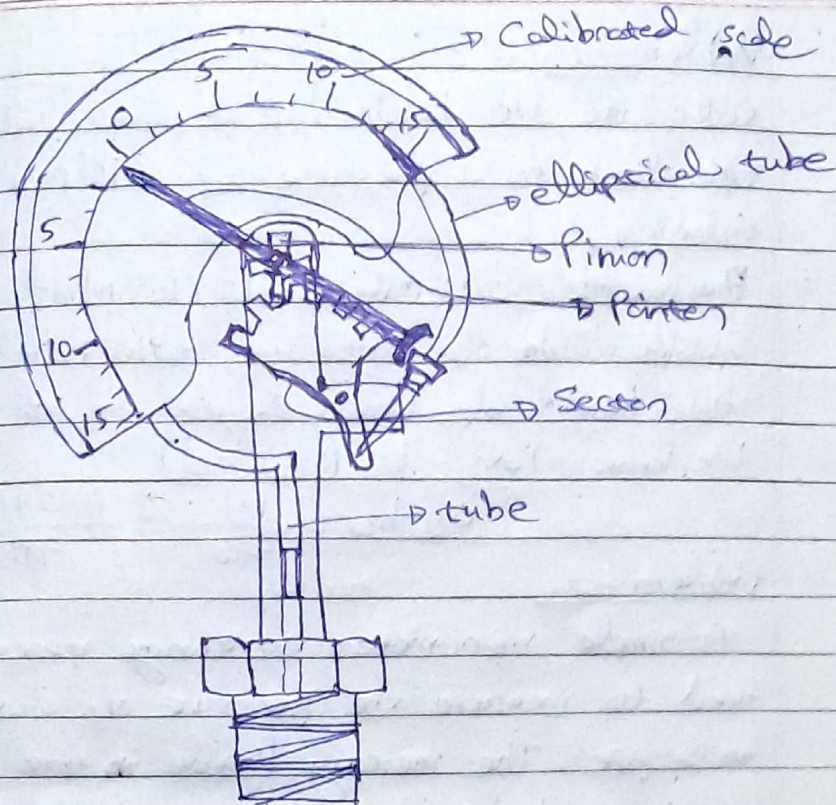 Calibrated scale
5
10
0
15
elliptical tube
5
Pinion
Pointer
10
Sector
15
tube